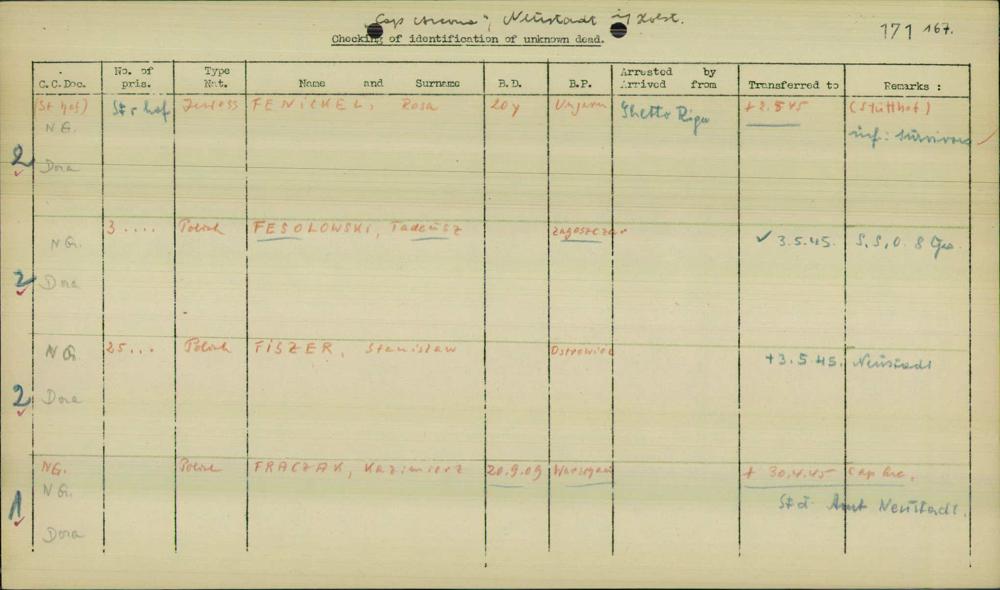 "Cap Arcona", Neustadt i/ Holst.
171 167.
Checking of identification of unknown dead.
C.C.Doc. No. of pris. Type Nat. Name and Surname B.D. B.P. Arrested by Arrived from Transferred to Remarks :
(St hof) Jewess FENICHEL, Rosa 20 y Ungarn Ghetto Riga + 2.5.45 (Stutthof)
NG. inf: survivors
2 Dora
3 .... Polish FESOLOWSKI, Tadeusz
NG. ✓ 3.5.45. S.S.O. 8
2 Dora
NG. 25 ... Polish FISZER, Stanislaw Ostrowiec
+ 3.5.45. Neustadt
2 Dora
NG. Polish FRACZAK, Kazimierz 20.9.09 Warszawa + 30.4.45 Cap Arc.
NG. St d. Amt Neustadt.
1
Dora